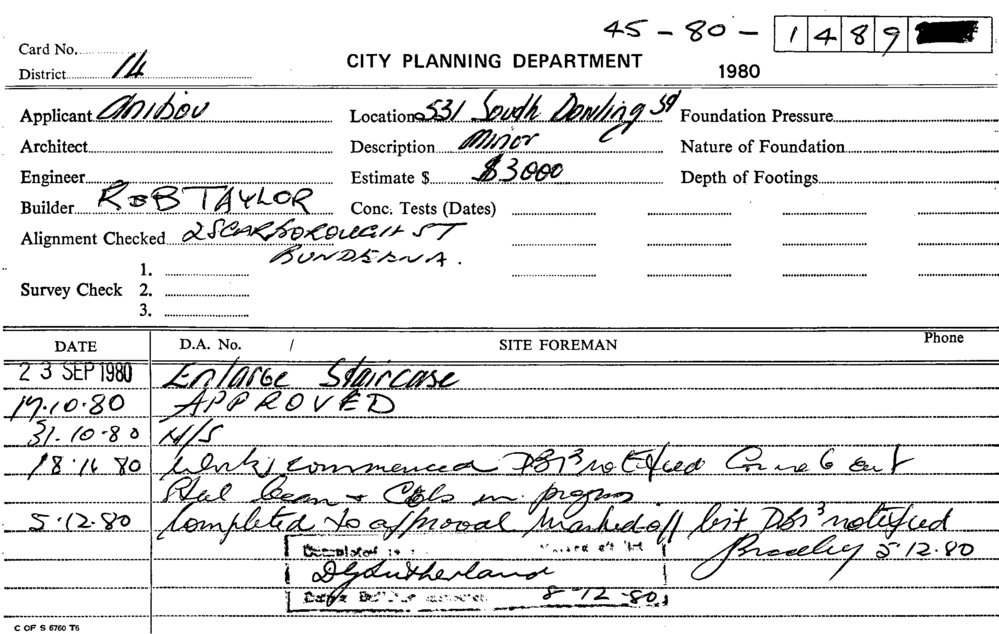 45-80-1489
Card No.
District 14
CITY PLANNING DEPARTMENT
1980
Applicant Anibou Location 531 South Dowling St Foundation Pressure
Architect Description Minor Nature of Foundation
Engineer Estimate $ $3000 Depth of Footings
Builder R & B TAYLOR Conc. Tests (Dates)
Alignment Checked 2 SCARBOROUGH ST
BUNDEENA.
1.
Survey Check 2.
3.
DATE D.A. No. / SITE FOREMAN Phone
23 SEP 1980 Enlarge Staircase
17.10.80 APPROVED
31.10.80 N/S
18.11.80 Works commenced notified out
Steel beam + Cols in progress
5.12.80 Completed to approval marked off list notified
5.12.80
Completed
DGSutherland
8-12-80
C OF S 6760 T6